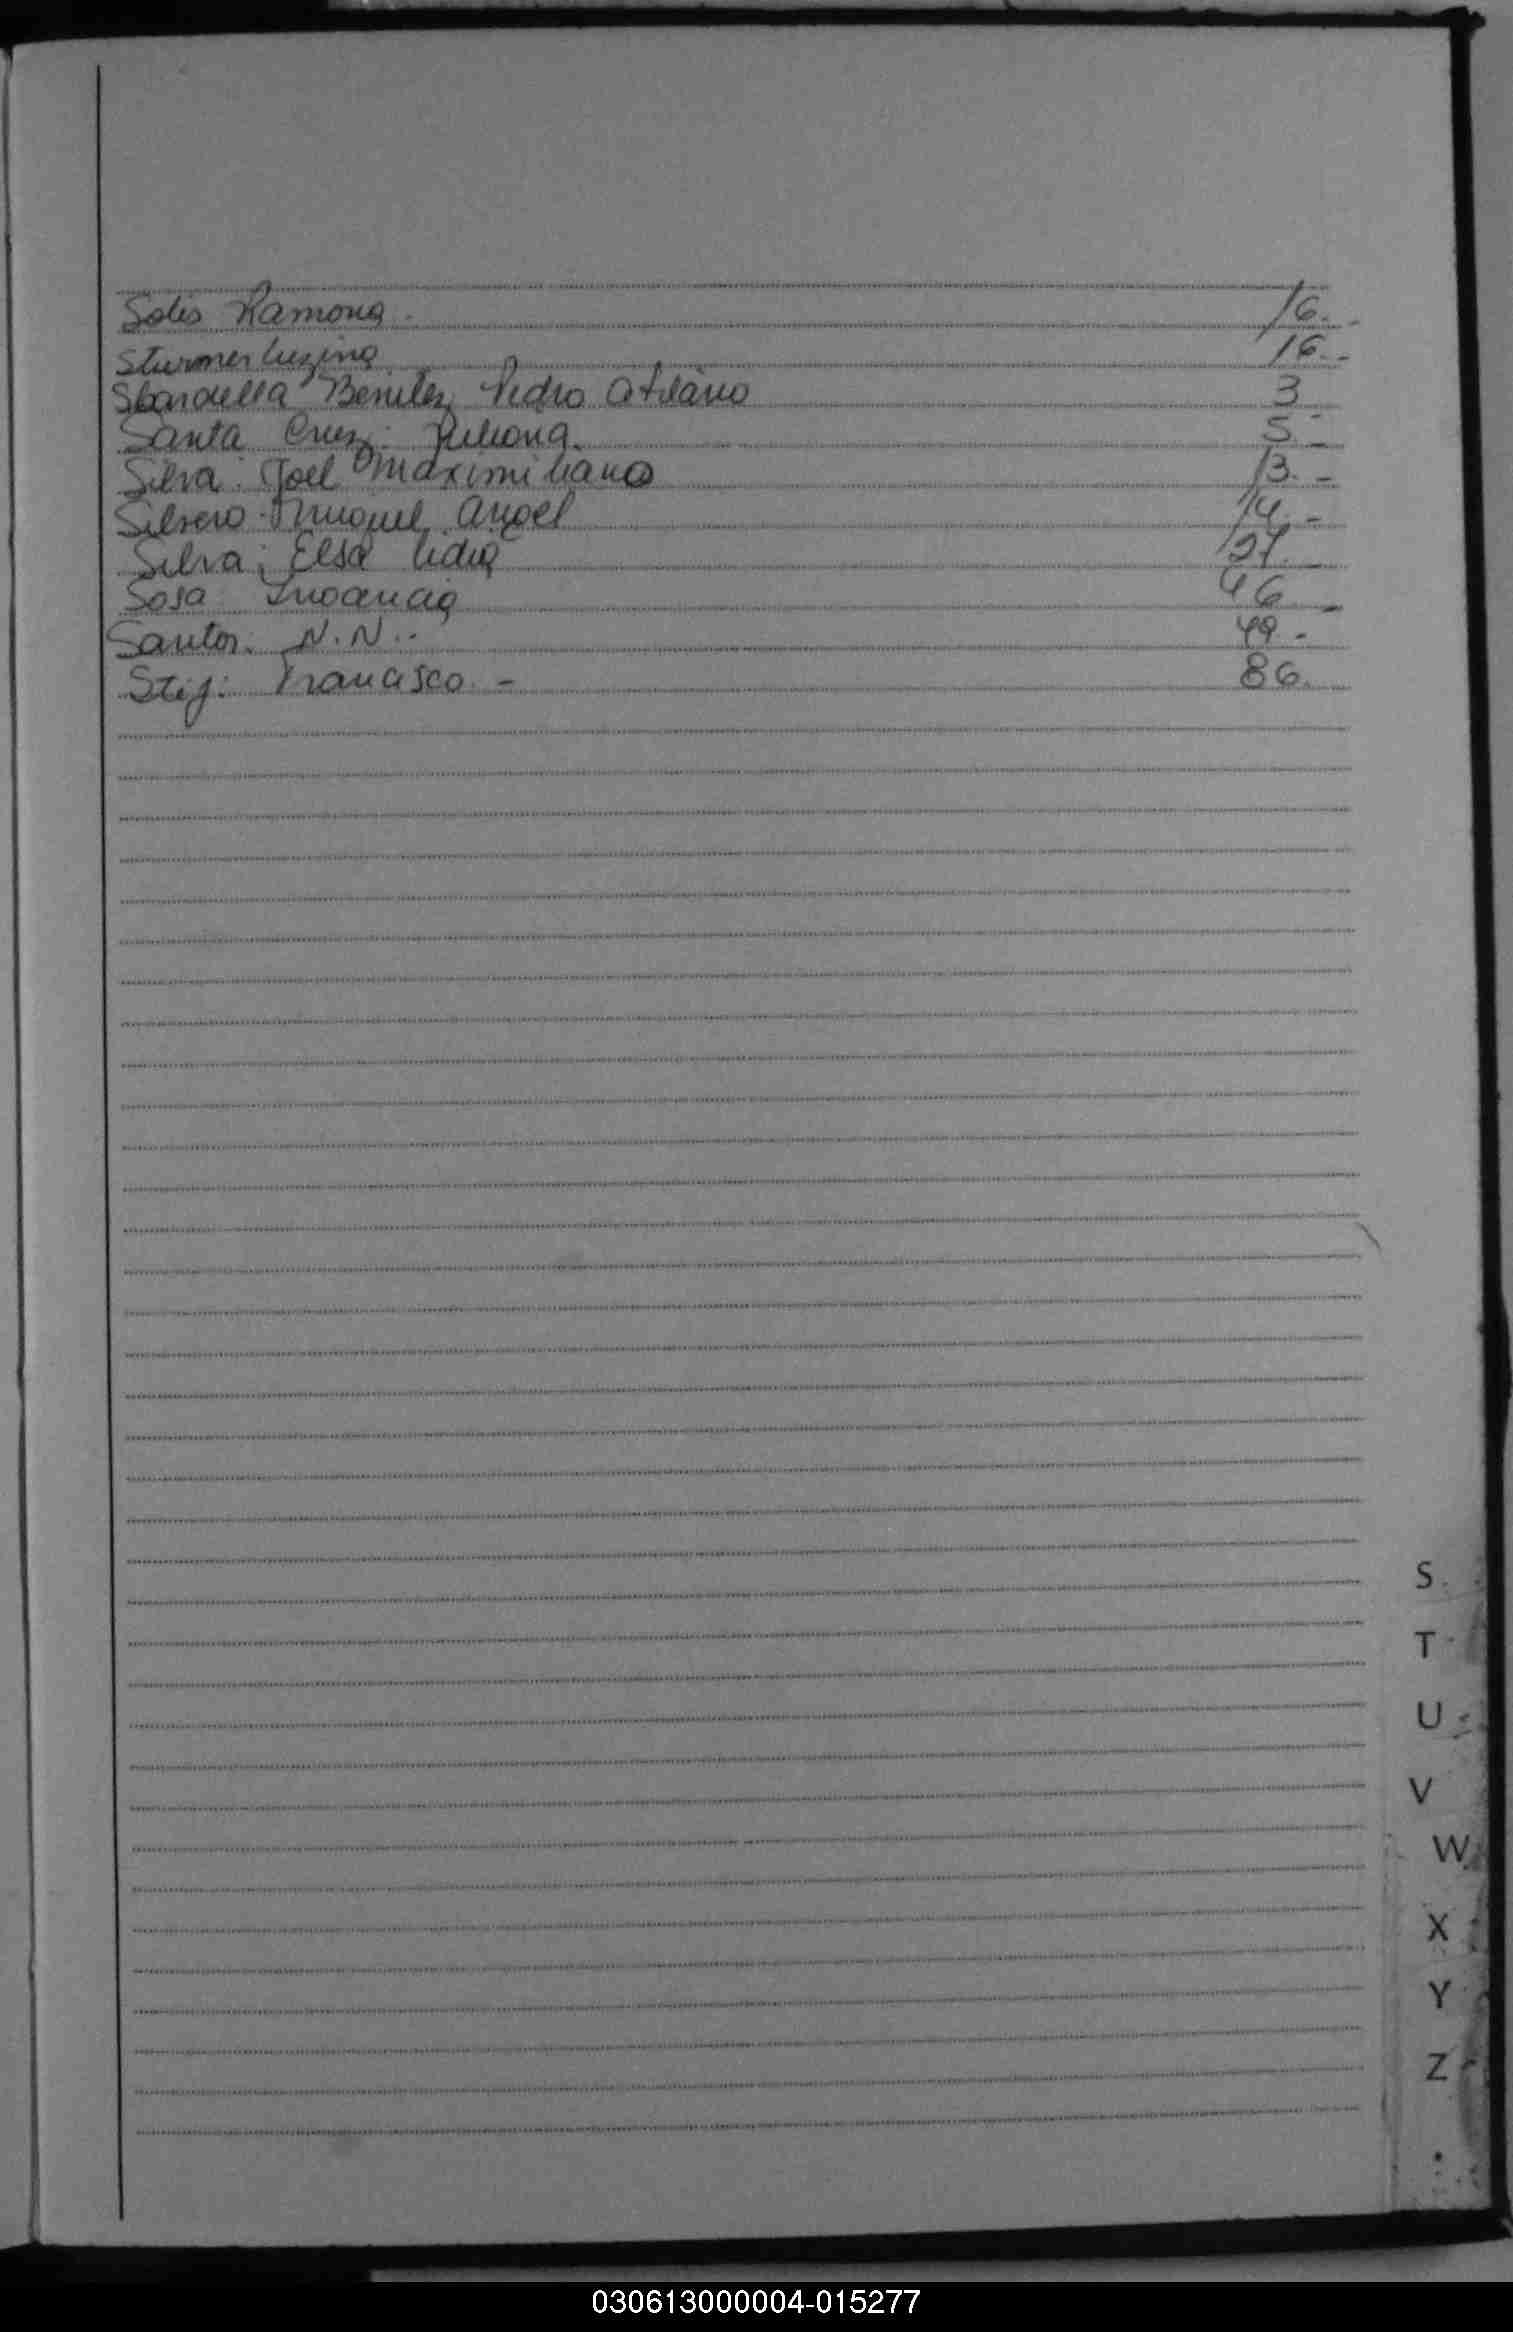 Solis Ramona. 16.-
Sturmer Luzina 16.-
Sbardella Benitez Pedro Atilano 3
Santa Cruz: Juliana. 5.-
Silva: Joel Maximiliano 13.-
Silvero: Miguel Angel 14.-
Silva; Elsa Lidia 27.-
Sosa Inocencia 46.-
Santos: N.N.. 49.-
Francisco.- 86.
S
T
U
V
W
X
Y
Z
030613000004-015277